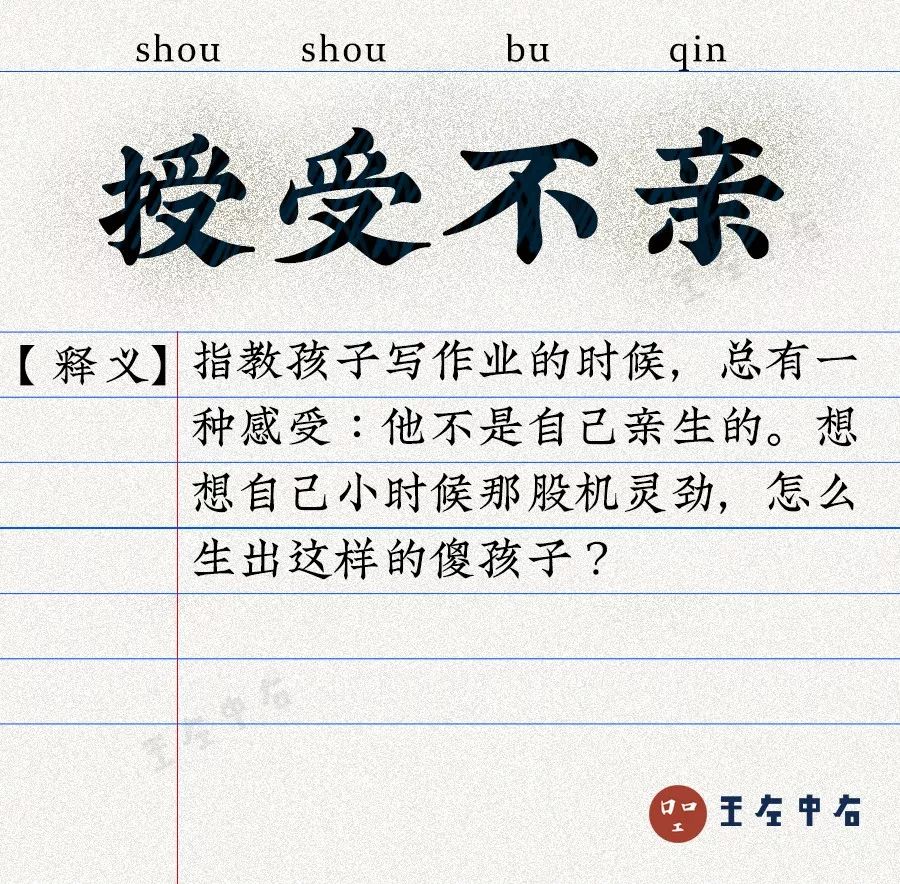 shou shou bu qin
授受不亲
【释义】指教孩子写作业的时候，总有一
种感受：他不是自己亲生的。想
想自己小时候那股机灵劲，怎么
生出这样的傻孩子？
王左中右
王左中右
王左中右